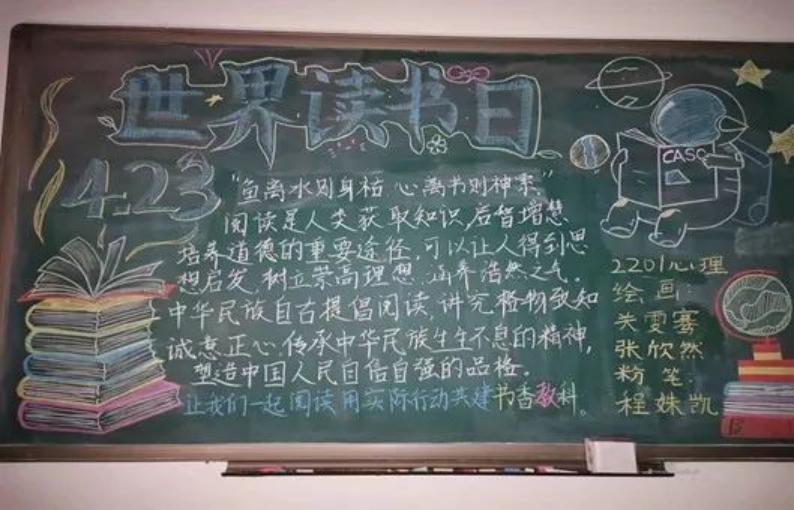 世界读书日
4.23
"鱼离水则身枯,心离书则神索"
阅读是人类获取知识,启智增慧
培养道德的重要途径,可以让人得到思
想启发,树立崇高理想,涵养浩然之气。
中华民族自古提倡阅读,讲究格物致知
诚意正心,传承中华民族生生不息的精神,
塑造中国人民自信自强的品格。
让我们一起阅读,用实际行动共建书香教科。
CASC
2201心理
绘画:
关雯骞
张欣然
粉笔:
程姝凯